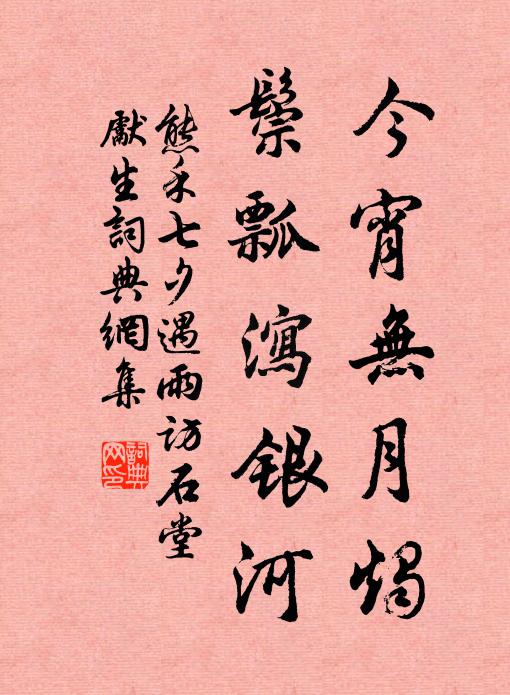 今宵無月燭
鬃瓢瀉銀河
熊禾七夕遇雨訪石堂
獻生詞典網集
詞典網印